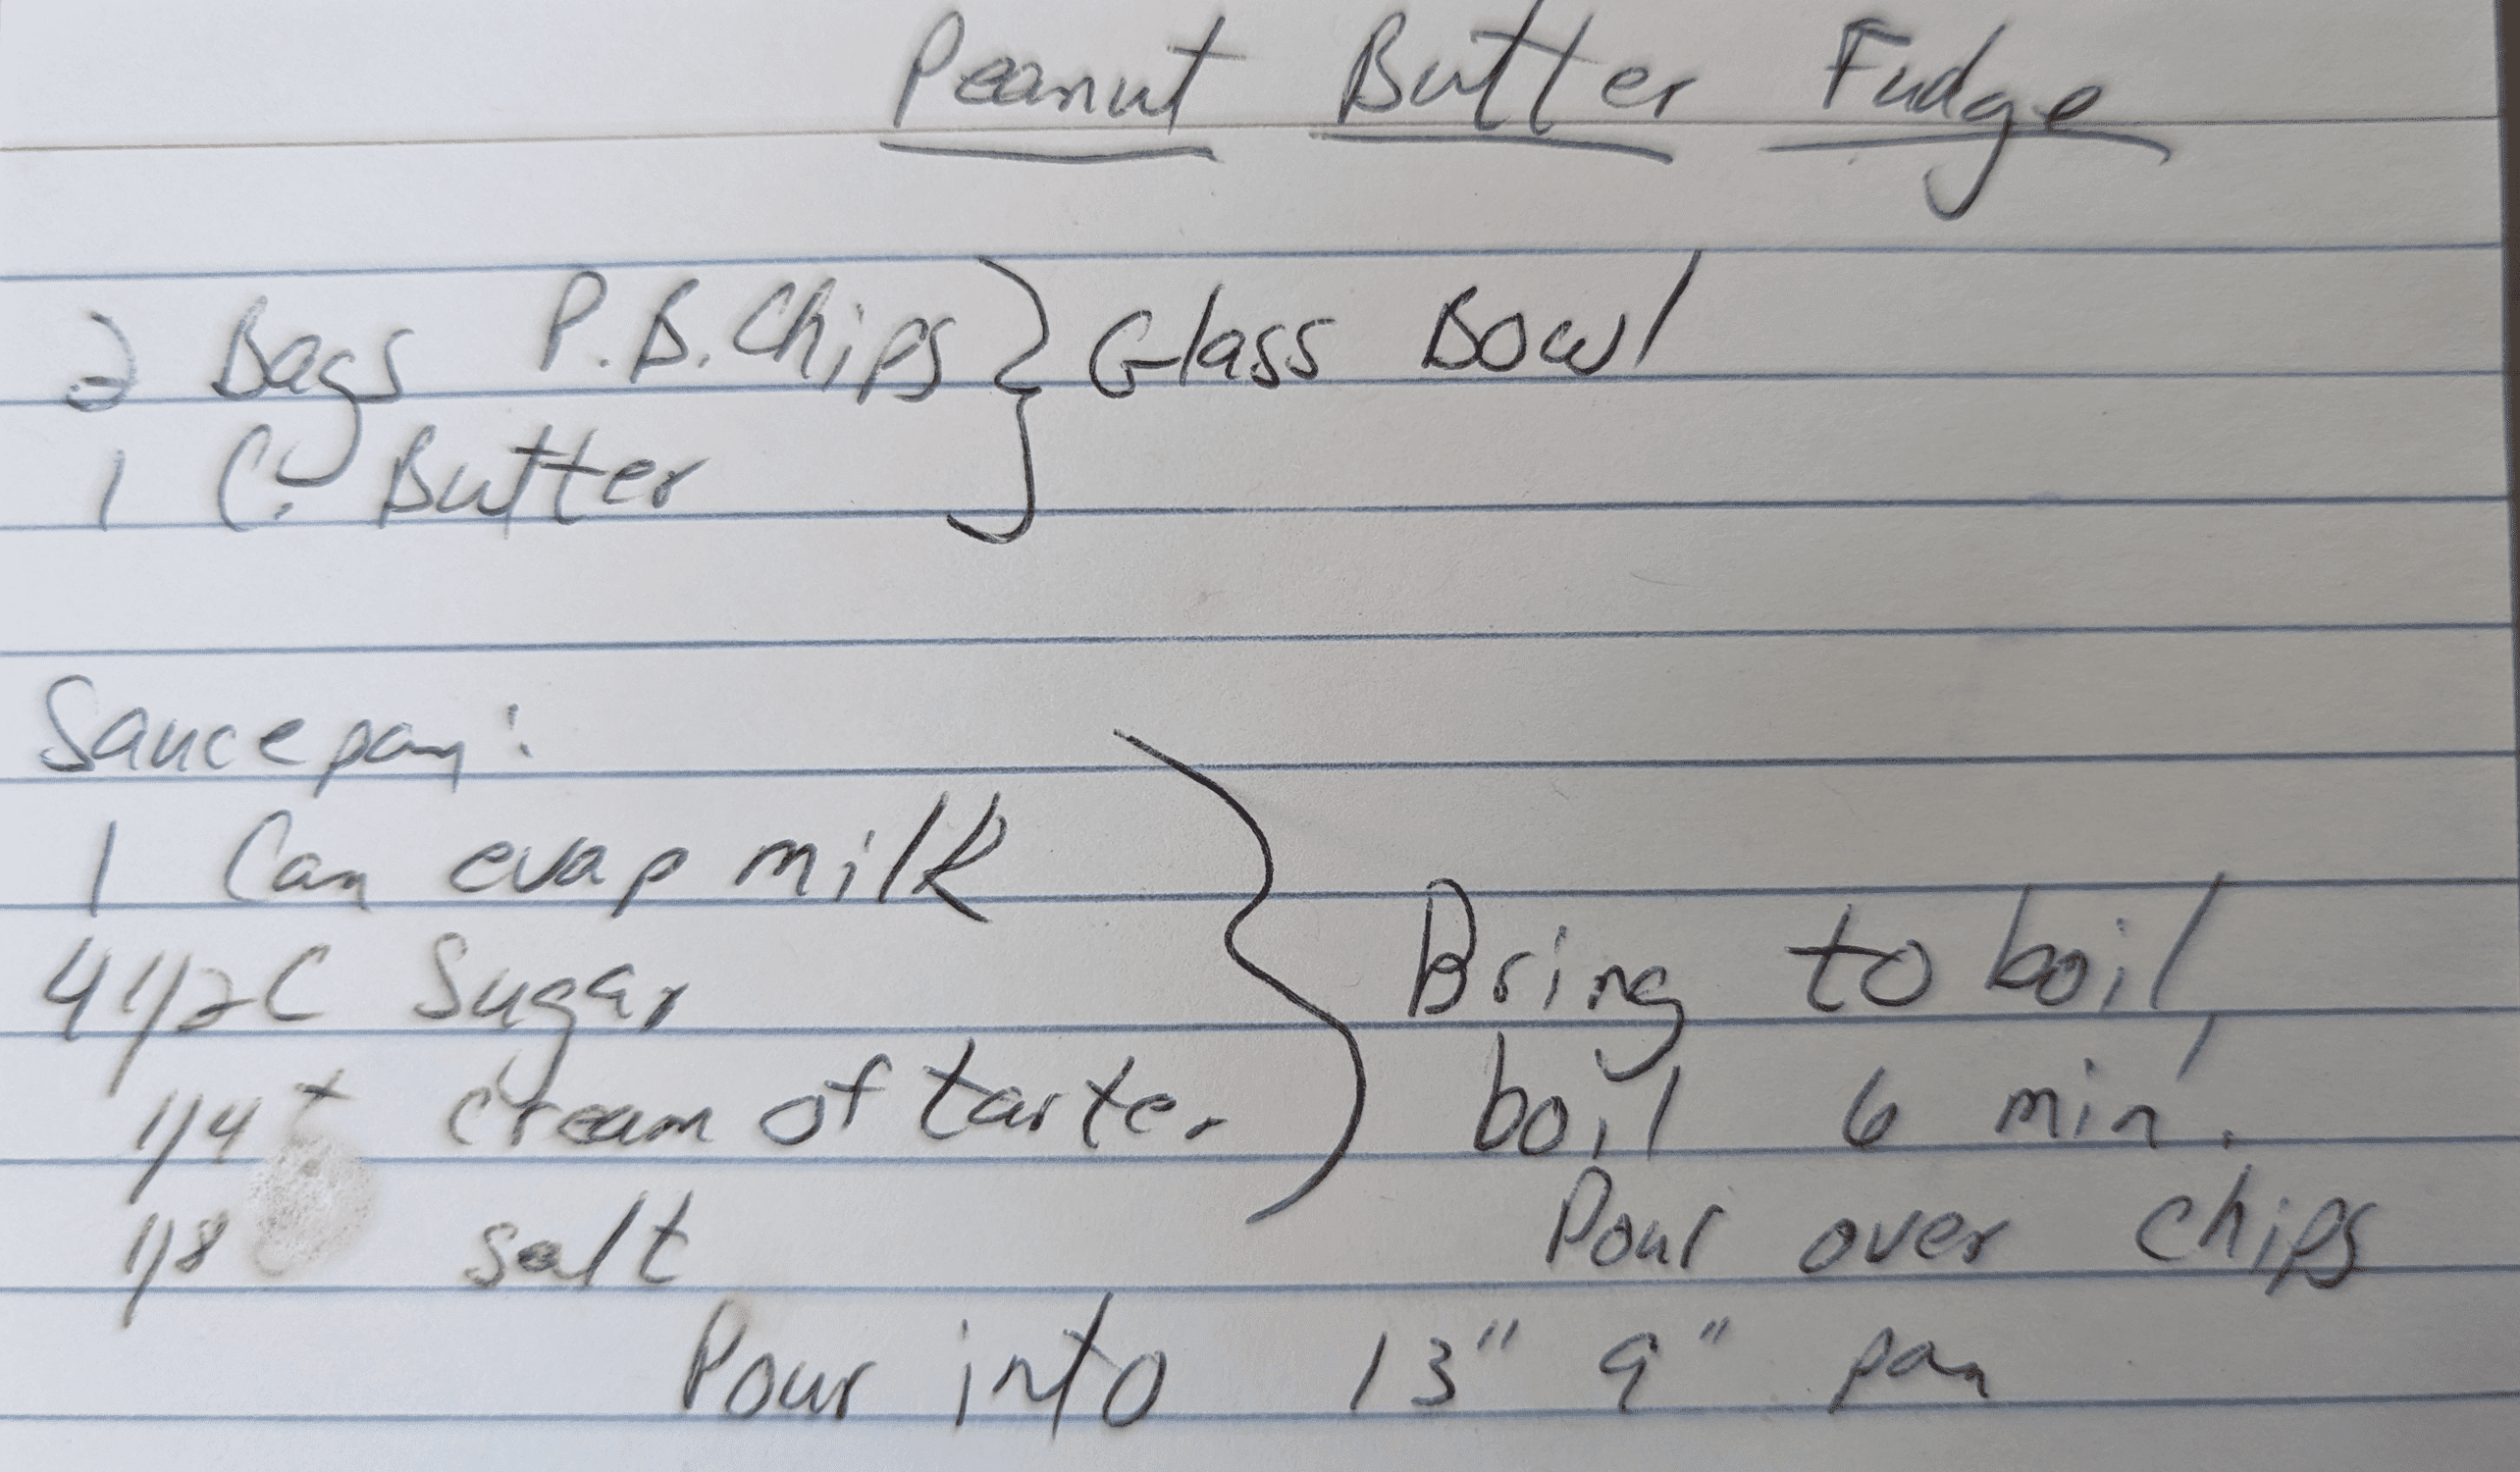 Peanut Butter Fudge
2 Bags P.B. Chips } Glass Bowl
1 C. Butter
Saucepan:
1 Can evap milk
4 1/2 C Sugar
1/4 t cream of tarter
1/8 salt
Bring to boil,
boil 6 min.
Pour over chips
Pour into 13" 9" pan